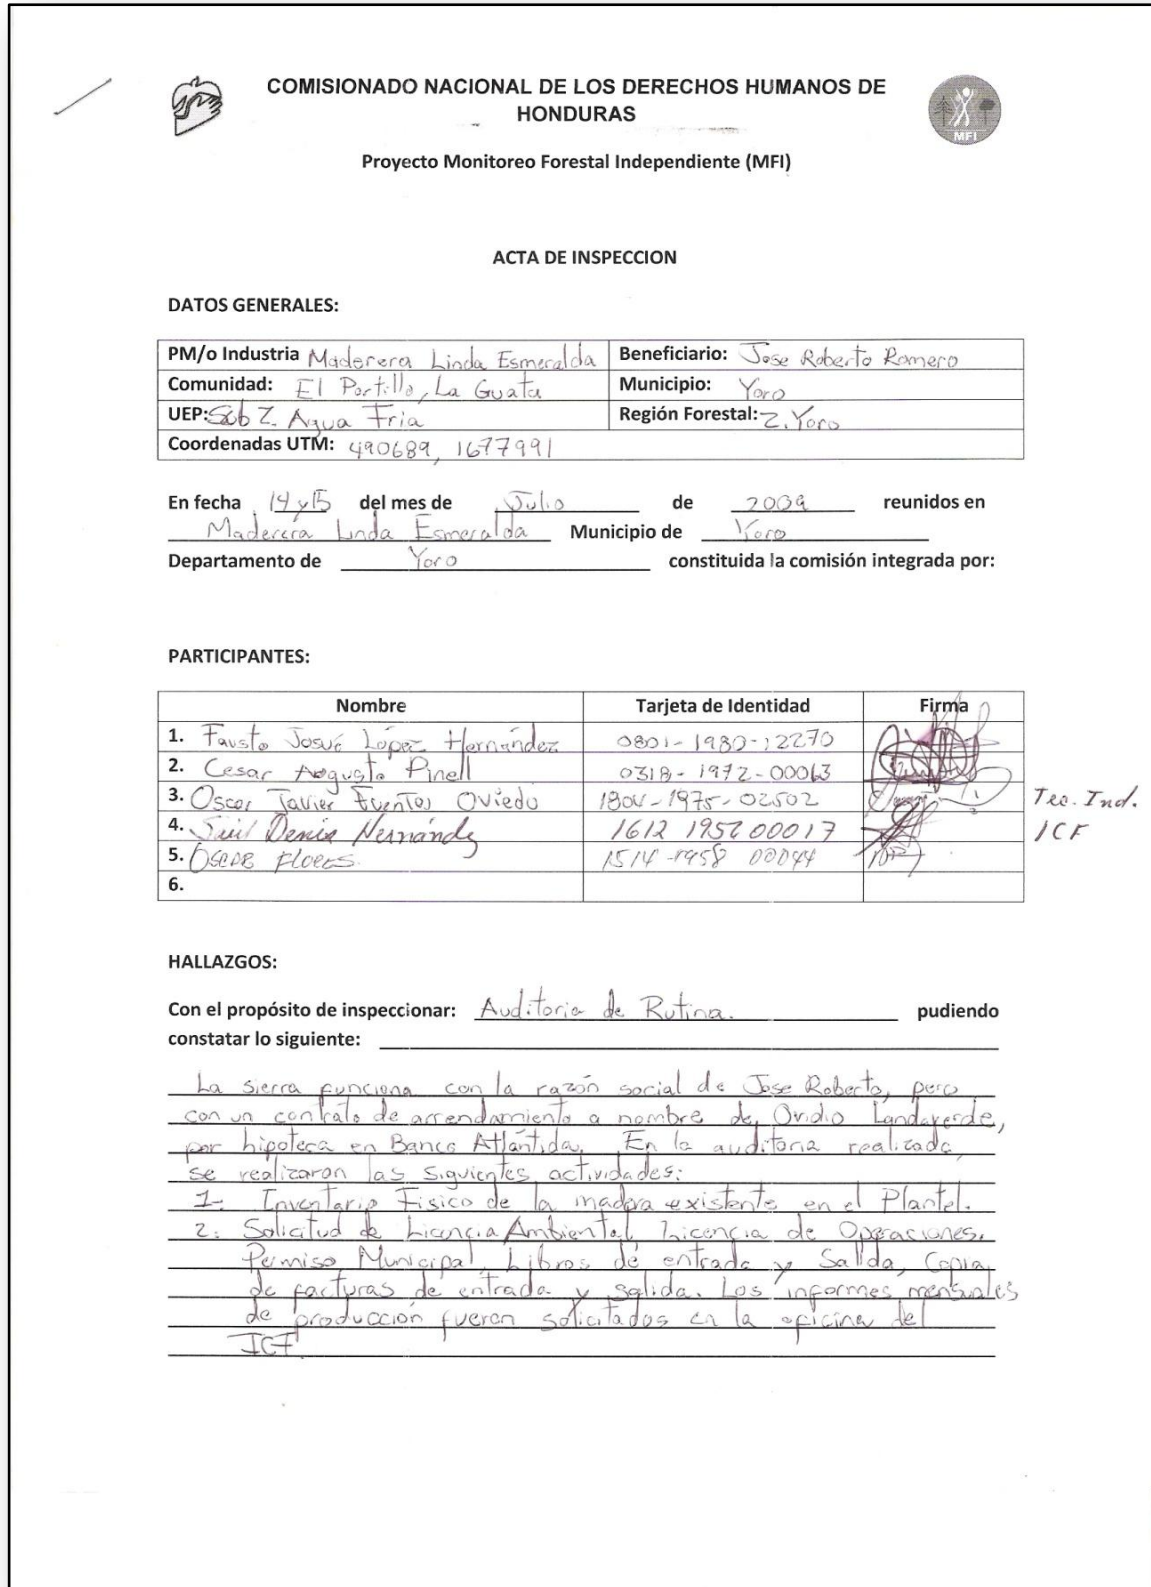 COMISIONADO NACIONAL DE LOS DERECHOS HUMANOS DE
HONDURAS
MFI
Proyecto Monitoreo Forestal Independiente (MFI)
ACTA DE INSPECCION
DATOS GENERALES:
PM/o Industria Maderera Linda Esmeralda Beneficiario: Jose Roberto Romero
Comunidad: El Portillo, La Guata Municipio: Yoro
UEP: Sub Z. Agua Fria Región Forestal: Z. Yoro
Coordenadas UTM: 490689, 1677991
En fecha 14 y 15 del mes de Julio de 2009 reunidos en
Maderera Linda Esmeralda Municipio de Yoro
Departamento de Yoro constituida la comisión integrada por:
PARTICIPANTES:
Nombre Tarjeta de Identidad Firma
1. Fausto Josué López Hernández 0801-1980-12270
2. Cesar Augusto Pinell 0318-1972-00063
3. Oscar Javier Fuentes Oviedo 1804-1975-02502 Tec. Ind.
4. Denis Hernández 1612 1957 00017 ICF
5. Oscar Flores 1514-1958 00044
6.
HALLAZGOS:
Con el propósito de inspeccionar: Auditoria de Rutina. pudiendo
constatar lo siguiente:
La sierra funciona con la razón social de Jose Roberto, pero
con un contrato de arrendamiento a nombre de Ovidio Landaverde,
por hipoteca en Banco Atlántida. En la auditoria realizada,
se realizaron las siguientes actividades:
1. Inventario Fisico de la madera existente en el Plantel.
2. Solicitud de Licencia Ambiental, Licencia de Operaciones,
Permiso Municipal, Libros de entrada y Salida, Copia
de facturas de entrada y salida. Los informes mensuales
de producción fueron solicitados en la oficina del
ICF